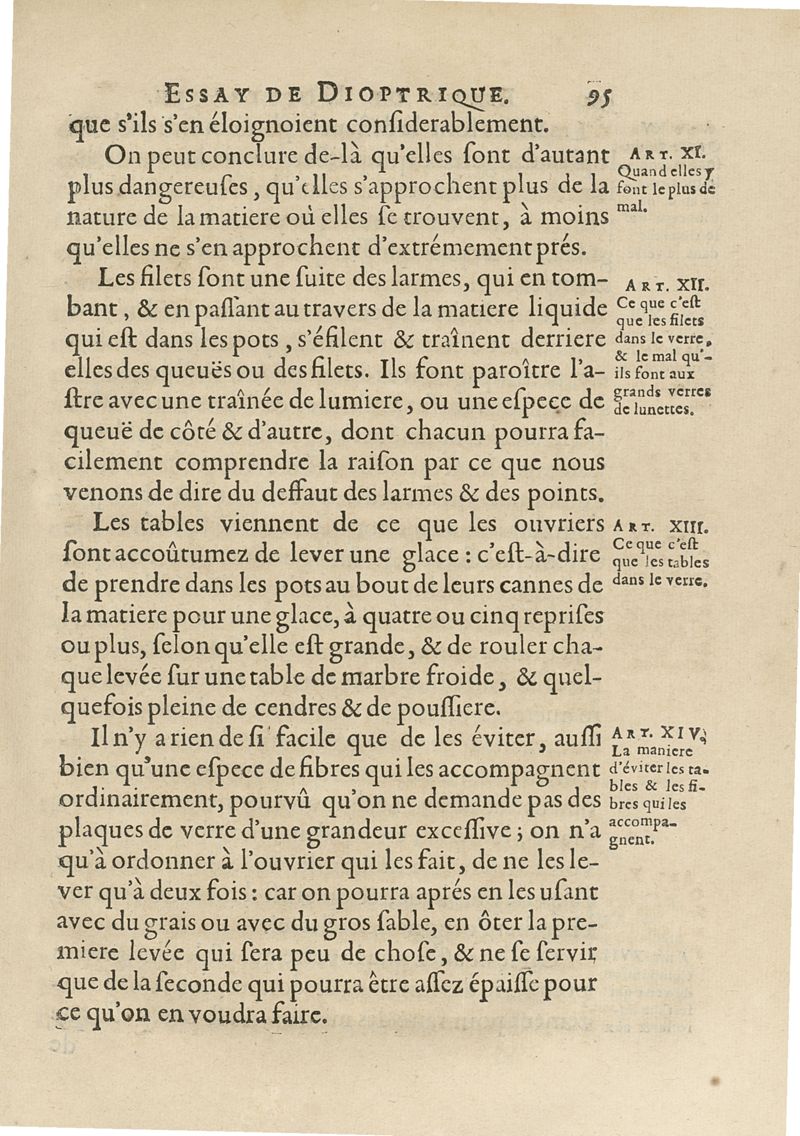 ESSAY DE DIOPTRIQUE. 95
que s'ils s'en éloignoient conſiderablement.
On peut conclure de-là qu'elles ſont d'autant
plus dangereuſes, qu'elles s'approchent plus de la
nature de la matiere où elles ſe trouvent, à moins
qu'elles ne s'en approchent d'extrémement prés.
ART. XI.
Quand elles y
font le plus de
mal.
Les filets ſont une ſuite des larmes, qui en tom-
bant, & en paſſant au travers de la matiere liquide
qui eſt dans les pots, s'éfilent & traînent derriere
elles des queuës ou des filets. Ils font paroître l'a-
ſtre avec une traînée de lumiere, ou une eſpece de
queuë de côté & d'autre, dont chacun pourra fa-
cilement comprendre la raiſon par ce que nous
venons de dire du deffaut des larmes & des points.
ART. XII.
Ce que c'eſt
que les filets
dans le verre,
& le mal qu'-
ils font aux
grands verres
de lunettes.
Les tables viennent de ce que les ouvriers
ſont accoûtumez de lever une glace : c'eſt-à-dire
de prendre dans les pots au bout de leurs cannes de
la matiere pour une glace, à quatre ou cinq repriſes
ou plus, ſelon qu'elle eſt grande, & de rouler cha-
que levée ſur une table de marbre froide, & quel-
quefois pleine de cendres & de pouſſiere.
ART. XIII.
Ce que c'eſt
que les tables
dans le verre.
Il n'y a rien de ſi facile que de les éviter, auſſi
bien qu'une eſpece de fibres qui les accompagnent
ordinairement, pourvû qu'on ne demande pas des
plaques de verre d'une grandeur exceſſive ; on n'a
qu'à ordonner à l'ouvrier qui les fait, de ne les le-
ver qu'à deux fois : car on pourra aprés en les uſant
avec du grais ou avec du gros ſable, en ôter la pre-
miere levée qui ſera peu de choſe, & ne ſe ſervir
que de la ſeconde qui pourra être aſſez épaiſſe pour
ce qu'on en voudra faire.
ART. XIV.
La maniere
d'éviter les ta-
bles & les fi-
bres qui les
accompa-
gnent.